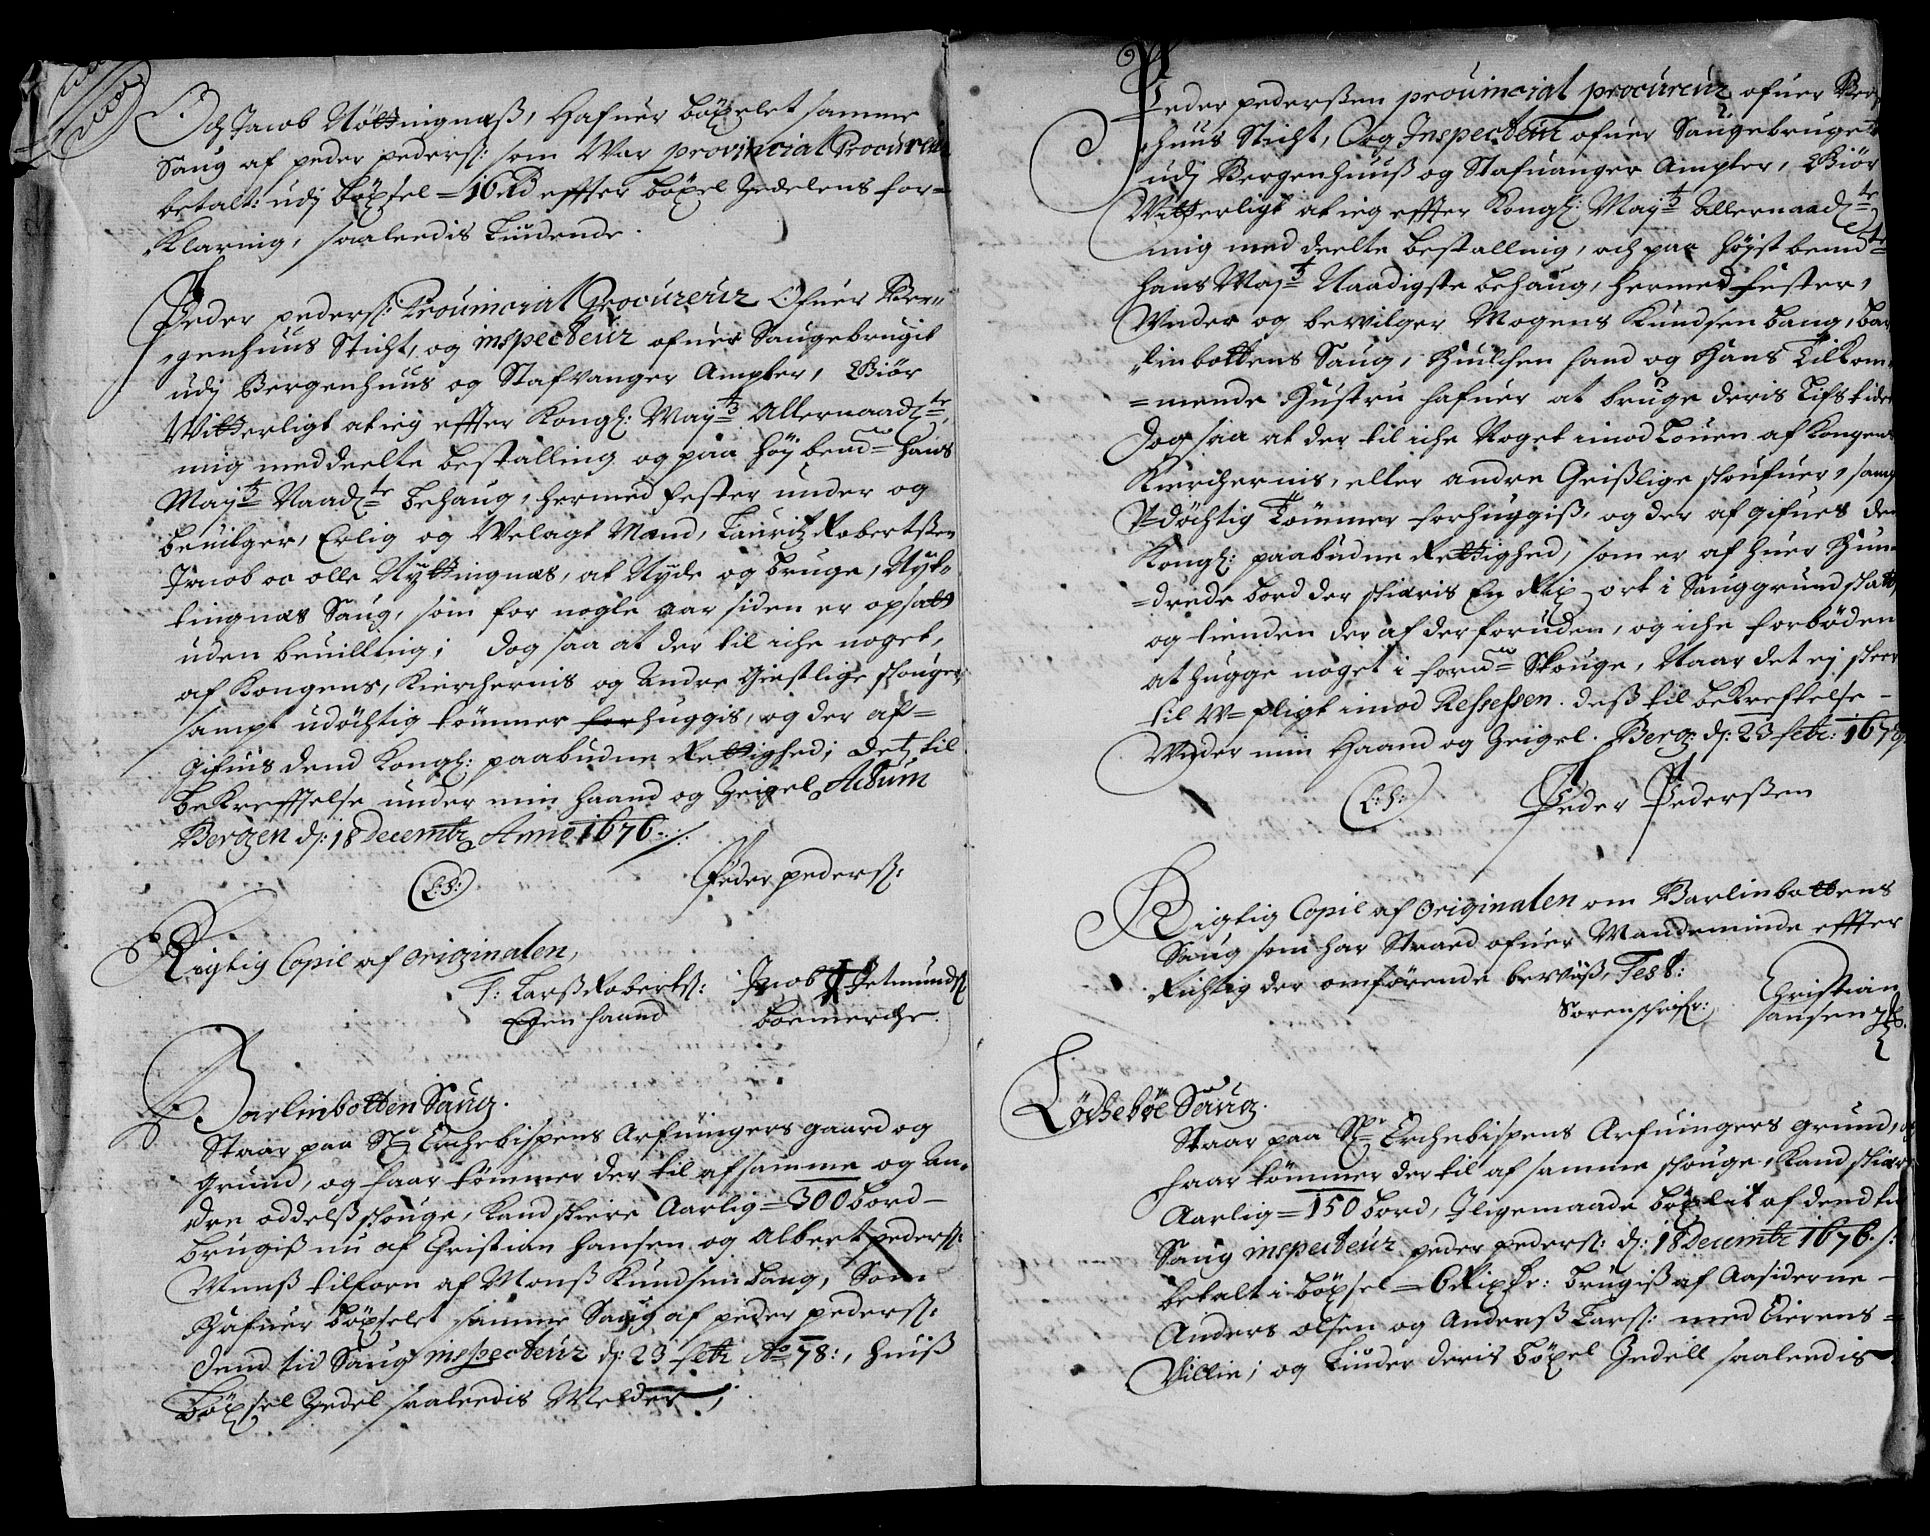 Och Jacob Nöttingnæß, Hafuer böxelet samme
Saug af peder peders: som War provincial Procureur
betalt: udj böxsel = 16 Rd effter böxel Zedelens for=
Klaring, saaleedis Liudende.
Peder peders: Prouincial Procureur Ofuer Ber=
genhuus Sticht, og inspecteur ofuer Saugebrugit
udj Bergenhuus og Stafvanger Ampter, Giör
Witterligt at ieg effter Kongl: May:tz Allernaad:te
mig meddeelte bestalling og paa höybend:te hans
May:tz Naad:te behaug, hermed fester under og
beuilger, Erlig og Velagt Mand, Lauritz Robertsen
Jacob oc olle Nyttingnæs, at Nyde og bruge, Nyt=
tingnæs Saug, som for nogle aar siden er opsatt
uden beuilling; dog saa at der til iche noget,
af Kongens, Kierchernis og Andre Giestlige skouger,
sampt udöchtig tömmer forhuggis, og der af=
gifuis dend Kongl: paabudne Rettighed; detz til
bekrefftelse under min haand og Zeigel Actum
Bergen d: 18 Decembr Anno 1676 ./.
(L:S:) Peder peders:
Rigtig Copie af originalen,
T: Larß Roberts: Jacob Jetmunds:
Egen haand boemerche.
Barlinbotten Saug.
Staar paa Sl: Erchebispens Arfuingers gaard og
grund, og faar tömmer der til af samme og An=
dre oddelß skouge, Kand skiere Aarlig = 300 bord -
brugiß nu af Christian Hansen og Albert peders:
Menß tilforn af Monß Kundsen bang, Som
Hafuer böxselet samme Saug af peder peders:
dend tid Saug inspecteur d: 23 febr Ao 78:, huiß
böxsel Zedel saaleedis Melder;
Peder pederßen prouincial procureur ofuer Ber
huus Sticht, Og Inspecteur ofuer Saugebruget
udj Bergenhuuß og Stafuanger Ampter, Giör
Witterligt at ieg effter Kongl: May:tz Allernaad:te
mig med deelte bestalling, och paa höyst bemt:te
hans May:tz Naadigste behaug, hermed fester,
Under og bevilger Mogens Kundsen bang, bar
linbottens Saug, huilchen hand og Hans Tilkom=
=mende Hustru hafuer at bruge deris Lifs tider
Dog saa at der til iche Noget imod Louen af Kongens
Kierchernis, eller andre Geißlige skoufuer, samt
Udöchtig Tömmer forhuggiß, og der af gifues den
Kongl: paabudne Rettighed, som er af huer Hun=
=drede bord der skiæris En Rix ort i Sauggrundskatt,
og tienden der af der foruden, og iche forböden
at hugge noget i forn:te Skouge, Naar det ej skeer
til U=pligt imod Resessen. deß til bekrefftelse -
Under min Haand og Zeigel. Berg: d: 23 febr: 1678
(L:S:) Peder Pederßen
Rigtig Copie af Originalen om Barlinbottens
Saug som har Staaed ofuer Mandeminde effter
Richtig der omförende beviiß, Test:
Sorenschrifr: Christian
Hansen
Löchebøe Saug.
Staar paa Sl: Erchebispens Arfuingers grund, og
faar tömmer der til af samme skouge, Kand skiære
Aarlig = 150 bord, Iligemaade böxlit af dend tid
Saug inspecteur peder peders: d: 18 Decembr 1676 ./.
betalt i böxsel = 6 Rixdr: brugiß af Aasiderne -
Anders olsen og Anderß Larß: med Eierens =
Villie; og Liuder deris böxel Zedell saaleedis